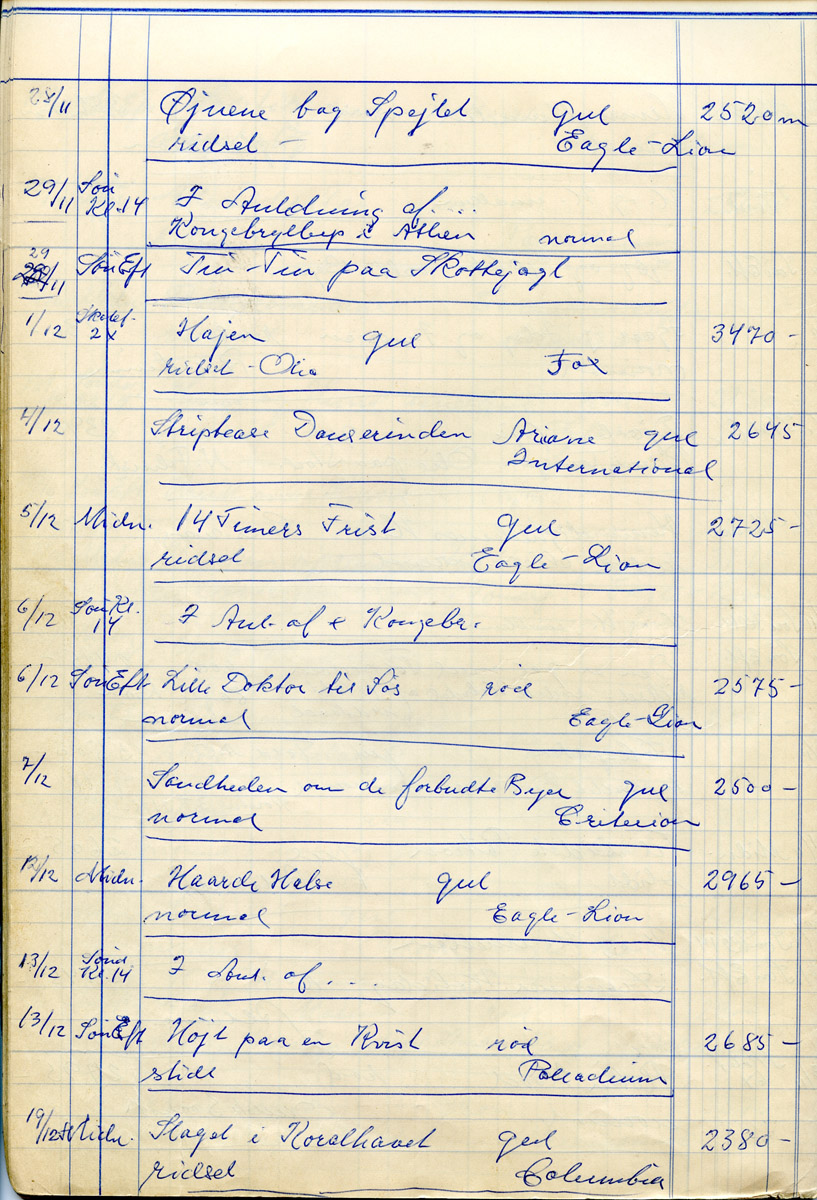 25/11 Øjnene bag Spejlet gul 2520 m
ridset - Eagle-Lion
29/11 Søn Kl. 14 I Anledning af ...
Kongebryllup i Athen normal
29/11 Søn Eft Tin-Tin paa Skattejagt
1/12 2x Hajen gul 3470 -
ridset - Fox
4/12 Striptease Danserinden Ariane gul 2645
International
5/12 Midn. 14 Timers Frist gul 2725 -
ridset Eagle-Lion
6/12 Søn Kl. 14 I Anl. af Kongebr.
6/12 Søn Eft Lille Doktor til Søs rød 2575 -
normal Eagle-Lion
7/12 Sandheden om de forbudte Byer gul 2500 -
normal Criterion
12/12 Midn. Haarde Halse gul 2965 -
normal Eagle-Lion
13/12 Sønd Kl. 14 I Anl. af ...
13/12 Søn Eft Højt paa en Kvist rød 2685 -
slidt Palladium
19/12 Midn. Slaget i Koralhavet gul 2380 -
ridset Columbia